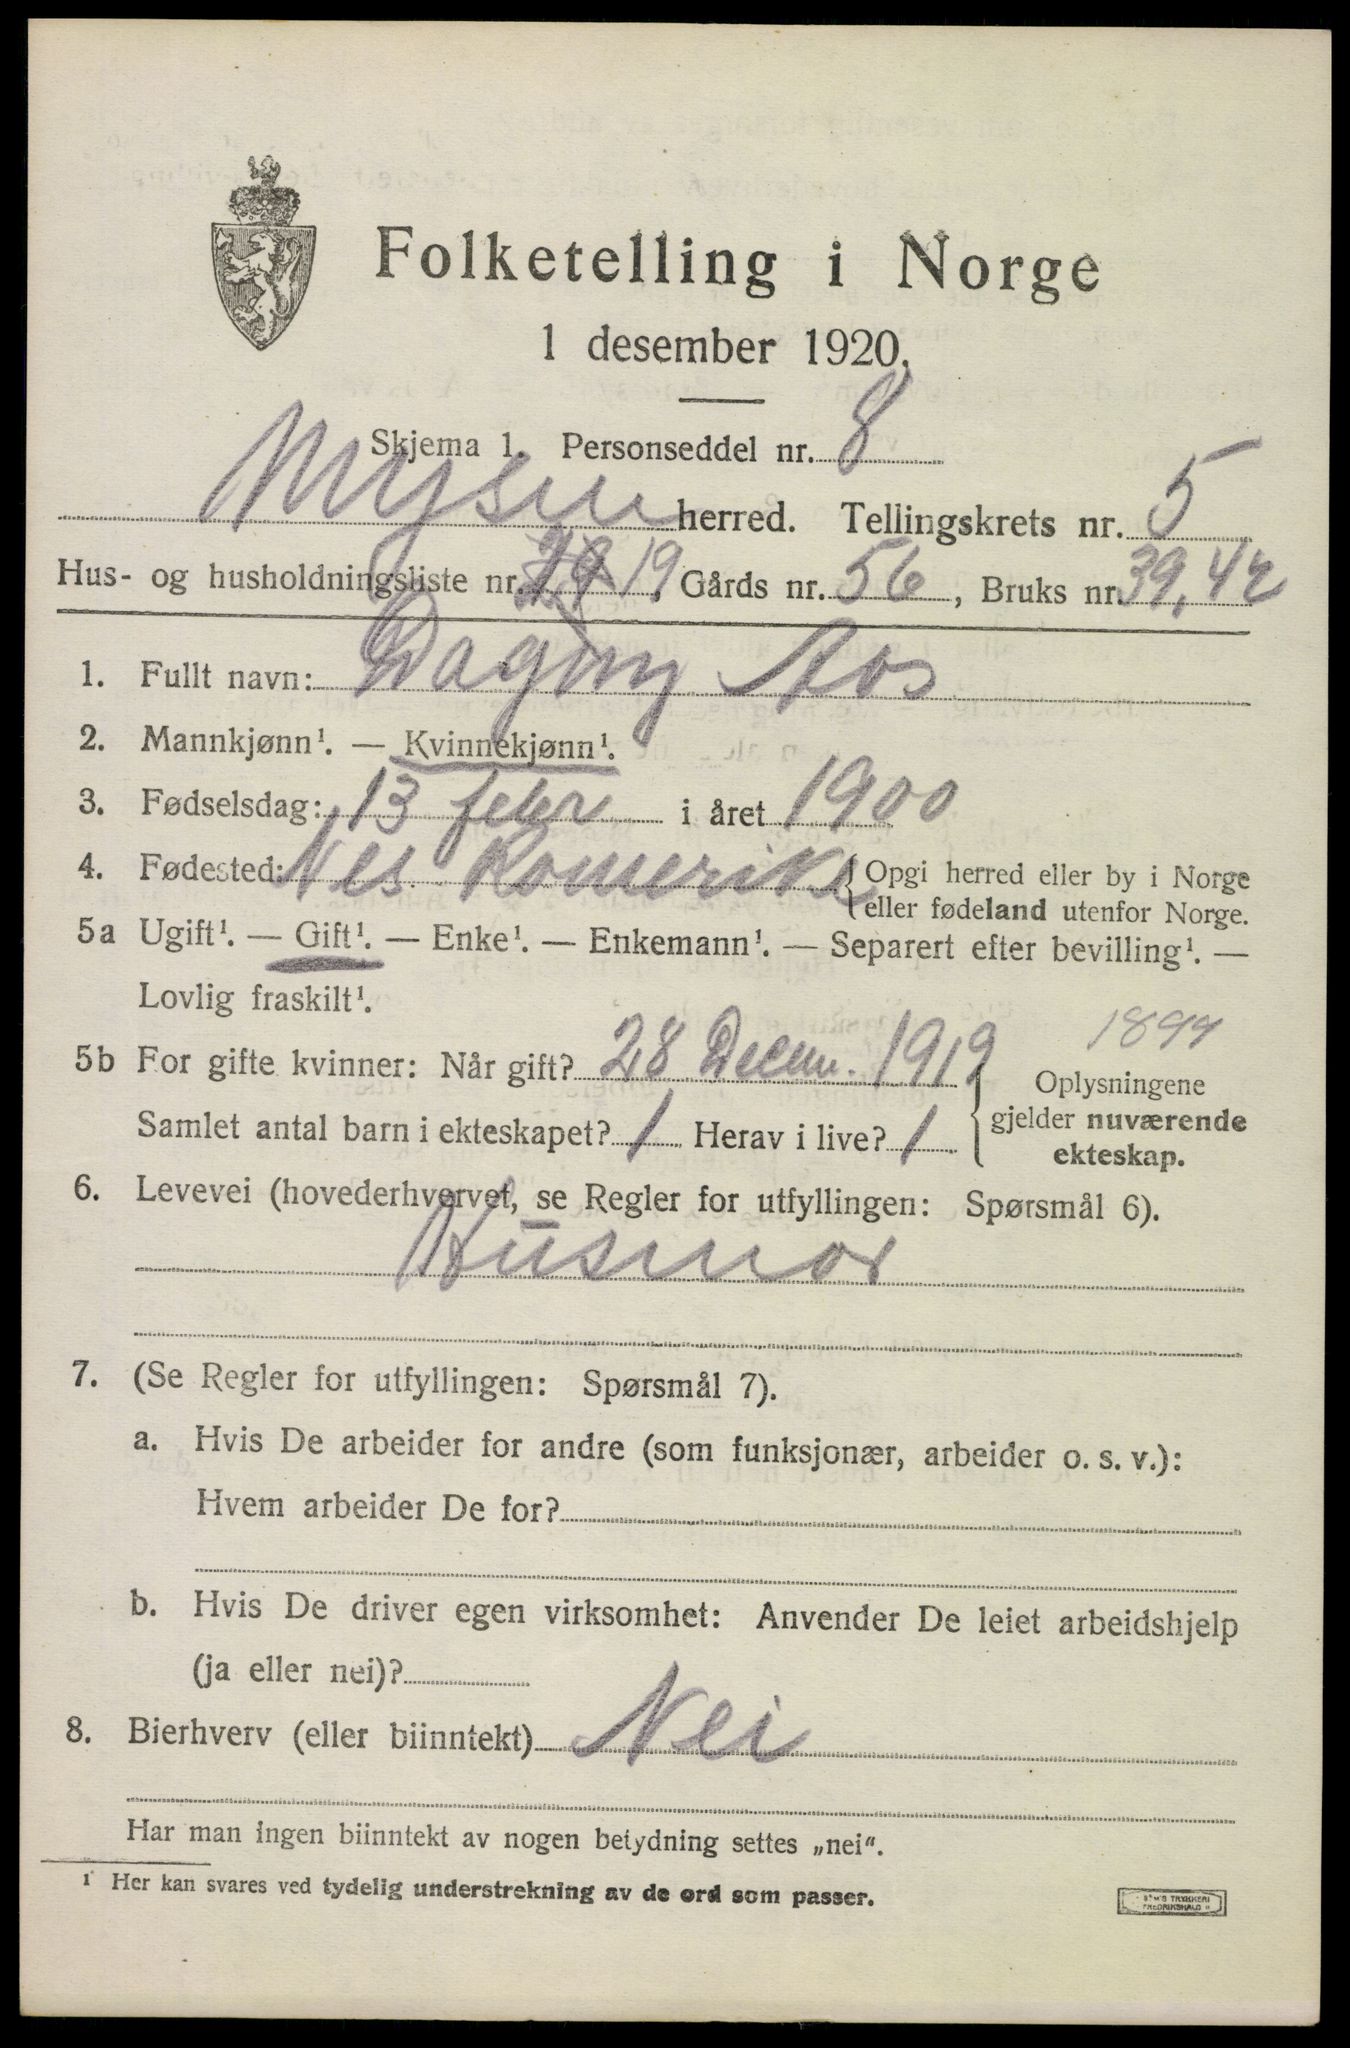 Folketelling i Norge
1 desember 1920.
Skjema 1. Personseddel nr. 8
Mysen herred. Tellingskrets nr. 5
Hus- og husholdningsliste nr. 19, Gårds nr. 56, Bruks nr. 39, 42
1. Fullt navn: Dagny Aos
2. Mannkjønn¹. — Kvinnekjønn¹.
3. Fødselsdag: 13 febr i året 1900
4. Fødested: Nes Romerike { Opgi herred eller by i Norge
eller fødeland utenfor Norge.
5a Ugift¹. — Gift¹. — Enke¹. — Enkemann¹. — Separert efter bevilling¹. —
Lovlig fraskilt¹.
1899
5b For gifte kvinner: Når gift? 28 Decem. 1919 { Oplysningene
gjelder nuværende
ekteskap.
Samlet antal barn i ekteskapet? 1 Herav i live? 1
6. Levevei (hovederhvervet, se Regler for utfyllingen: Spørsmål 6).
Husmor
7. (Se Regler for utfyllingen: Spørsmål 7).
a. Hvis De arbeider for andre (som funksjonær, arbeider o. s. v.):
Hvem arbeider De for?
b. Hvis De driver egen virksomhet: Anvender De leiet arbeidshjelp
(ja eller nei)?
8. Bierhverv (eller biinntekt) Nei
Har man ingen biinntekt av nogen betydning settes „nei“.
¹ Her kan svares ved tydelig understrekning av de ord som passer.
TRYKKERI
FREDRIKSHALD